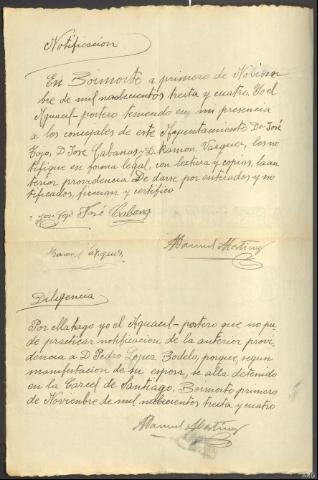 Notificacion
En Boimorto a primero de Nobiem
bre de mil nobecientos treita y cuatro. Yo el
Aguacil-portero teniendo en mi presencia
a los concejales de este Ayuntamiento Dn José
D. José Cabanas y D. Ramon Vazquez, les no
tifique en forma legal, con lectura y copias, la an
terior providencia. De darse por enterados y no
tificados, firman y certifico
José Cabanas
Manuel Martinez
Diligencia
Por Mahago yo el Aguacil-portero que no pu
de practicar notificacion de la anterior provi
dencia a D. Pedro Lopez Bodelo, porque segun
manifestacion de su esposa, se alla detenido
en la Carcel de Santiago, Boimorto primero
de Noviembre de mil nobecientos treita y cuatro
Manuel Martinez